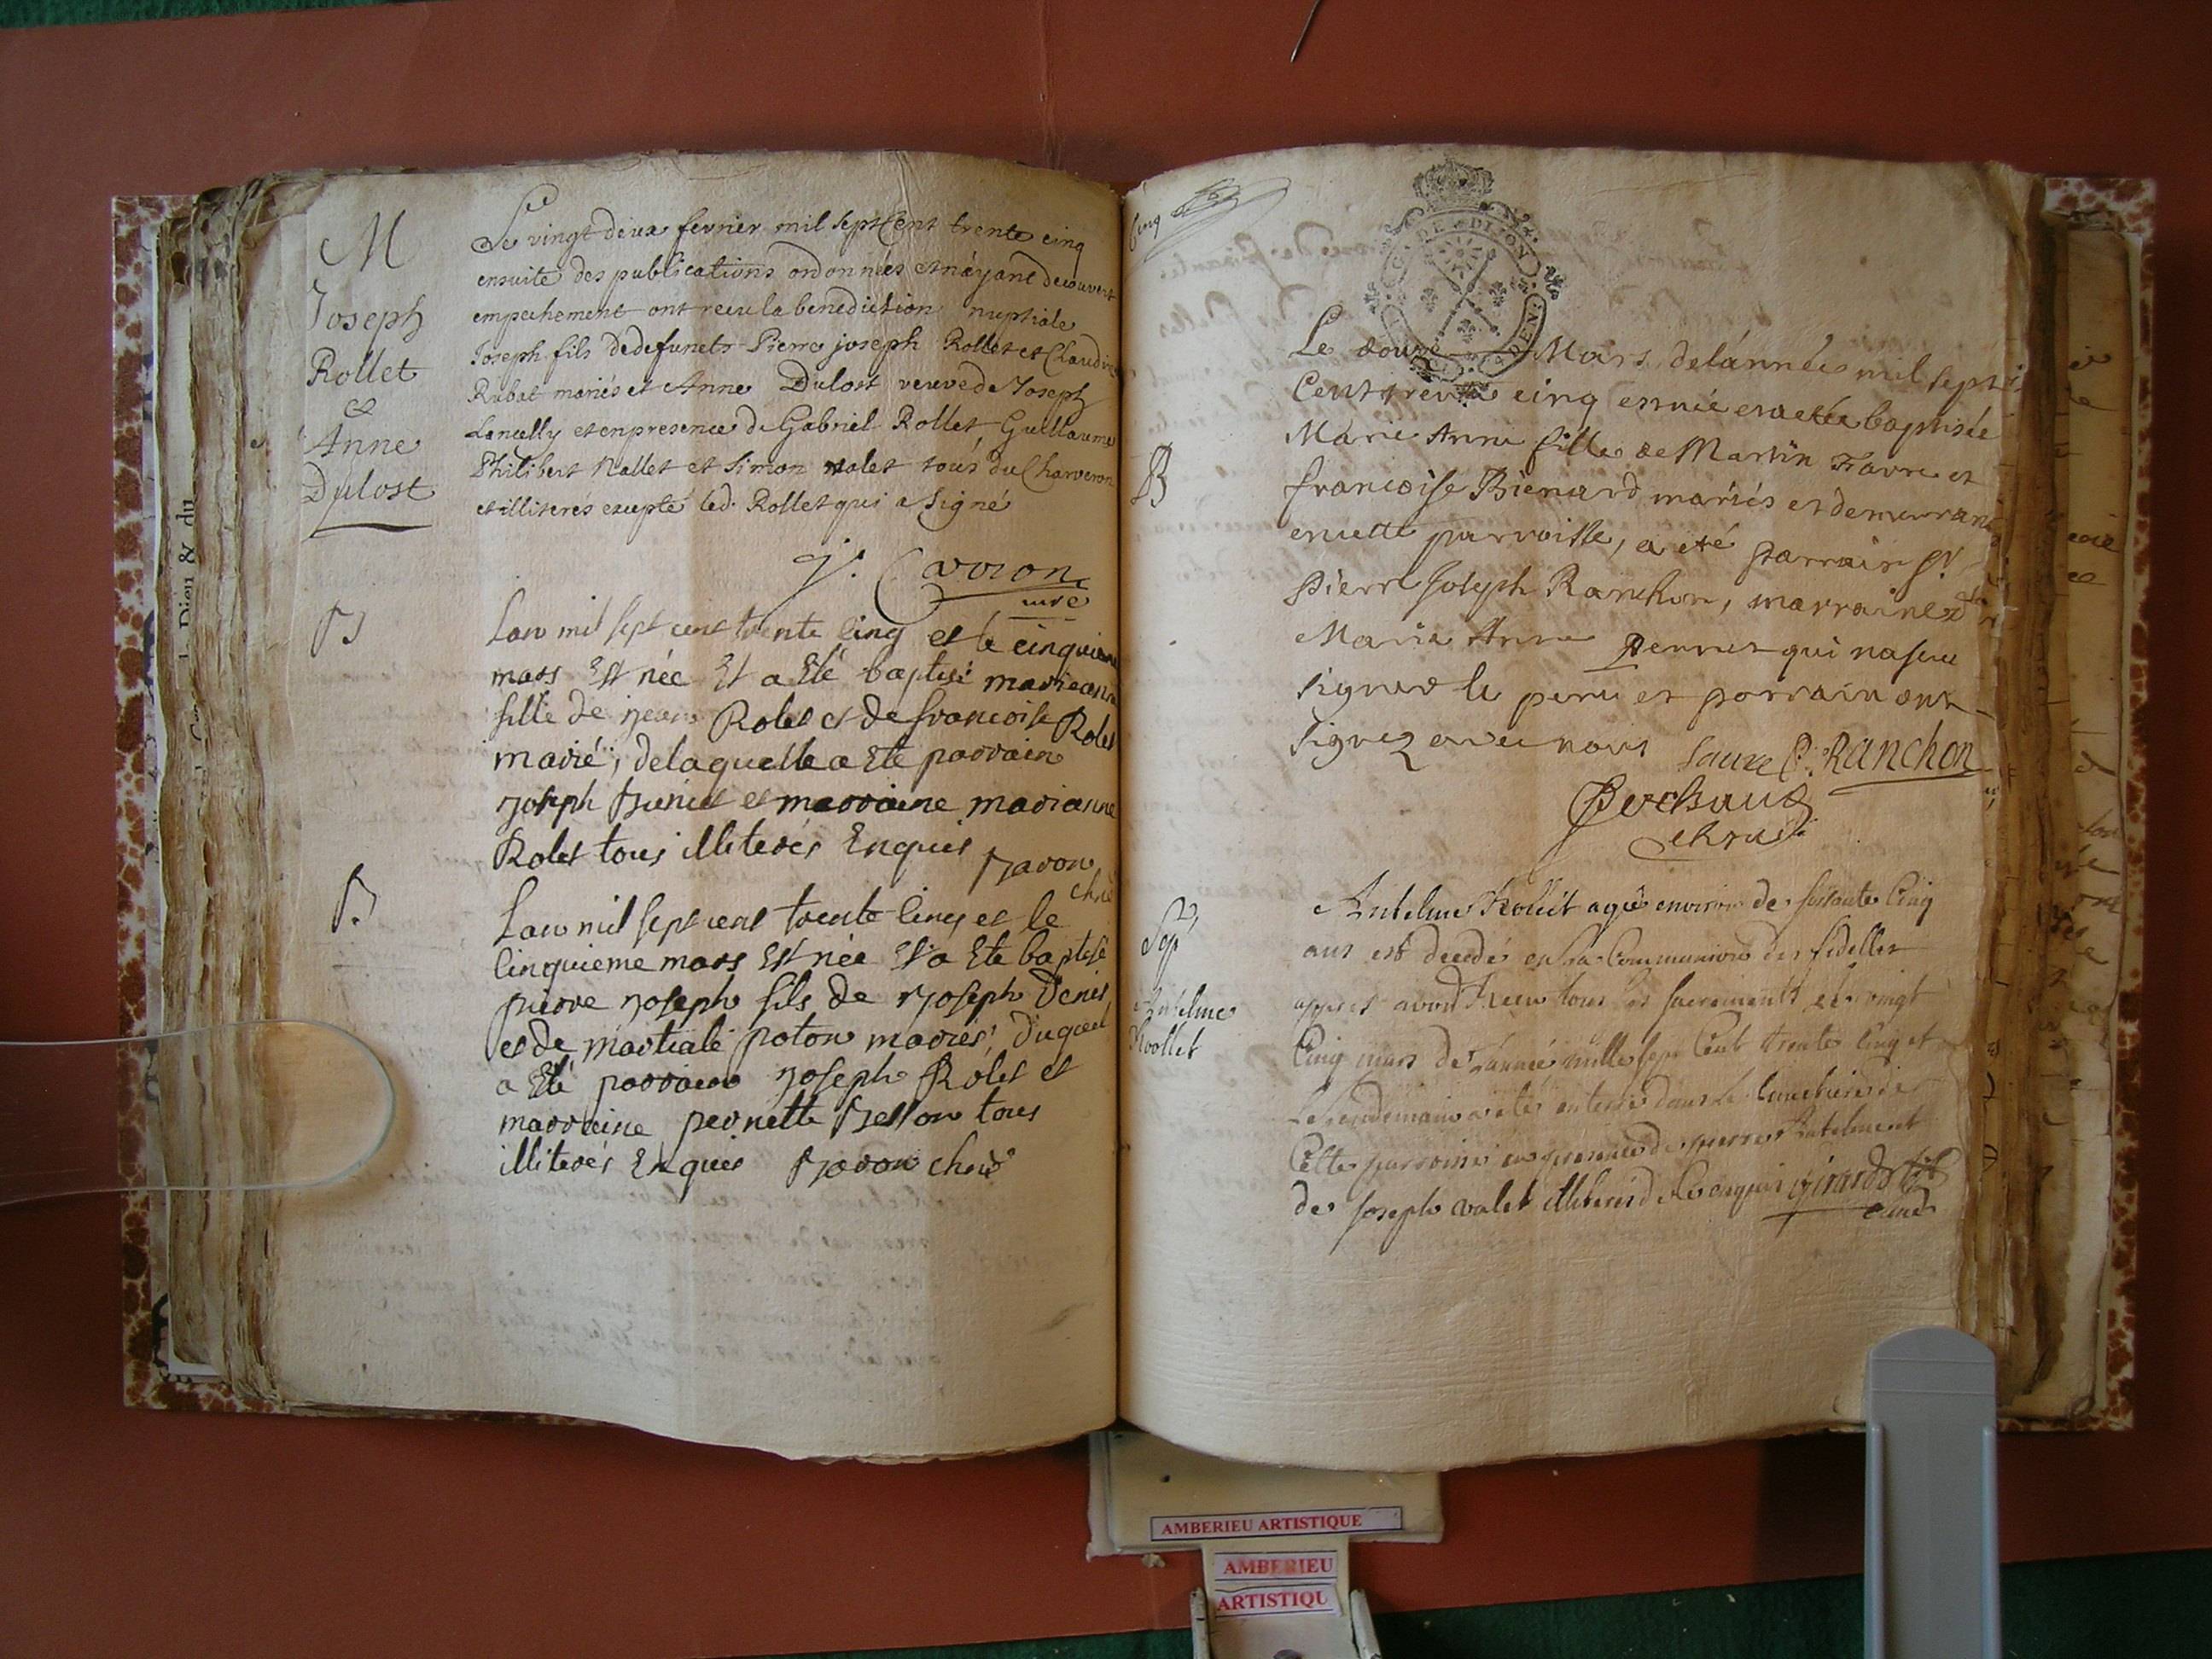 M
Joseph
Rollet
&
Anne
Dulost
Le vingt deux fevrier mil sept Cent trente cinq
ensuite des publications ordonnées et náyant decouvert
empechement ont recu la benediction nuptiale
Joseph fils de defunets Pierre joseph Rollet et Claudine
Rubat mariés et Anne Dulost veuve de Joseph
Lancelly et en presence de Gabriel Rollet Guillaume
Philibert Nallet et Simon valet tous du Charveron
et illiterés excepté led. Rollet qui a signé
J. Cavoron
curé
B
Lan mil sept cent trente cinq et le cinquieme
mars Est née Et a Eté baptisé marieanne
fille de jean Rolet et de francoise Rolet
marié, delaquelle a Eté parrain
joseph et marraine marianne
Rolet tous illiterés Enquis
B
Lan mil sept cent trente cinq et le
cinquieme mars Est née Et a Eté baptisé
pierre joseph fils de joseph Denis
et de martiale poton mariés, Duquel
a Eté parrain joseph Rolet et
marraine pernette tous
illiterés Enquis
cinq
G. DE DIJON
B
Le douze Mars de lánnée mil sept
Cent trente cinq est née et a etée baptisée
Marie Anne fille de Martin Favre et
francoise Bienard mariés et demeurant
en cette parroisse, a eté parrain Sr
Pierre Joseph Ranchon, marraine
Marie Anne Perrier qui na sceu
signer le pere et parrain ont
signez avec nous favre P. RANCHON
Sep
Antelme
Roollet
Antelme Rollet agé environ de soisante Cinq
ans est decedé en la Communion des fidelles
appres avoir Receu tous les sacrements et le vingt
Cinq mars de lannée mille sept Cent trente Cinq et
Le lendemain a eté enterré dans le Cimetiere de
Cette parroisse en presence de pierre Antelme et
de Joseph valet illiterés de ce enquis Girard
curé
L. Dieu & du
AMBERIEU ARTISTIQUE
AMBERIEU
ARTISTIQU